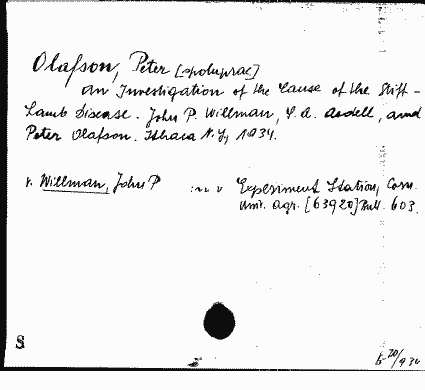 Olafson, Peter [społuprac]
An Investigation of the Cause of the Stiff-
Lamb Disease. John P. Willman, S. A. Asdell, and
Peter Olafson. Ithaca N.Y, 1934.
v. Willman, John P Experiment Station, Corn.
Univ. agr. [63920] Bull. 603.